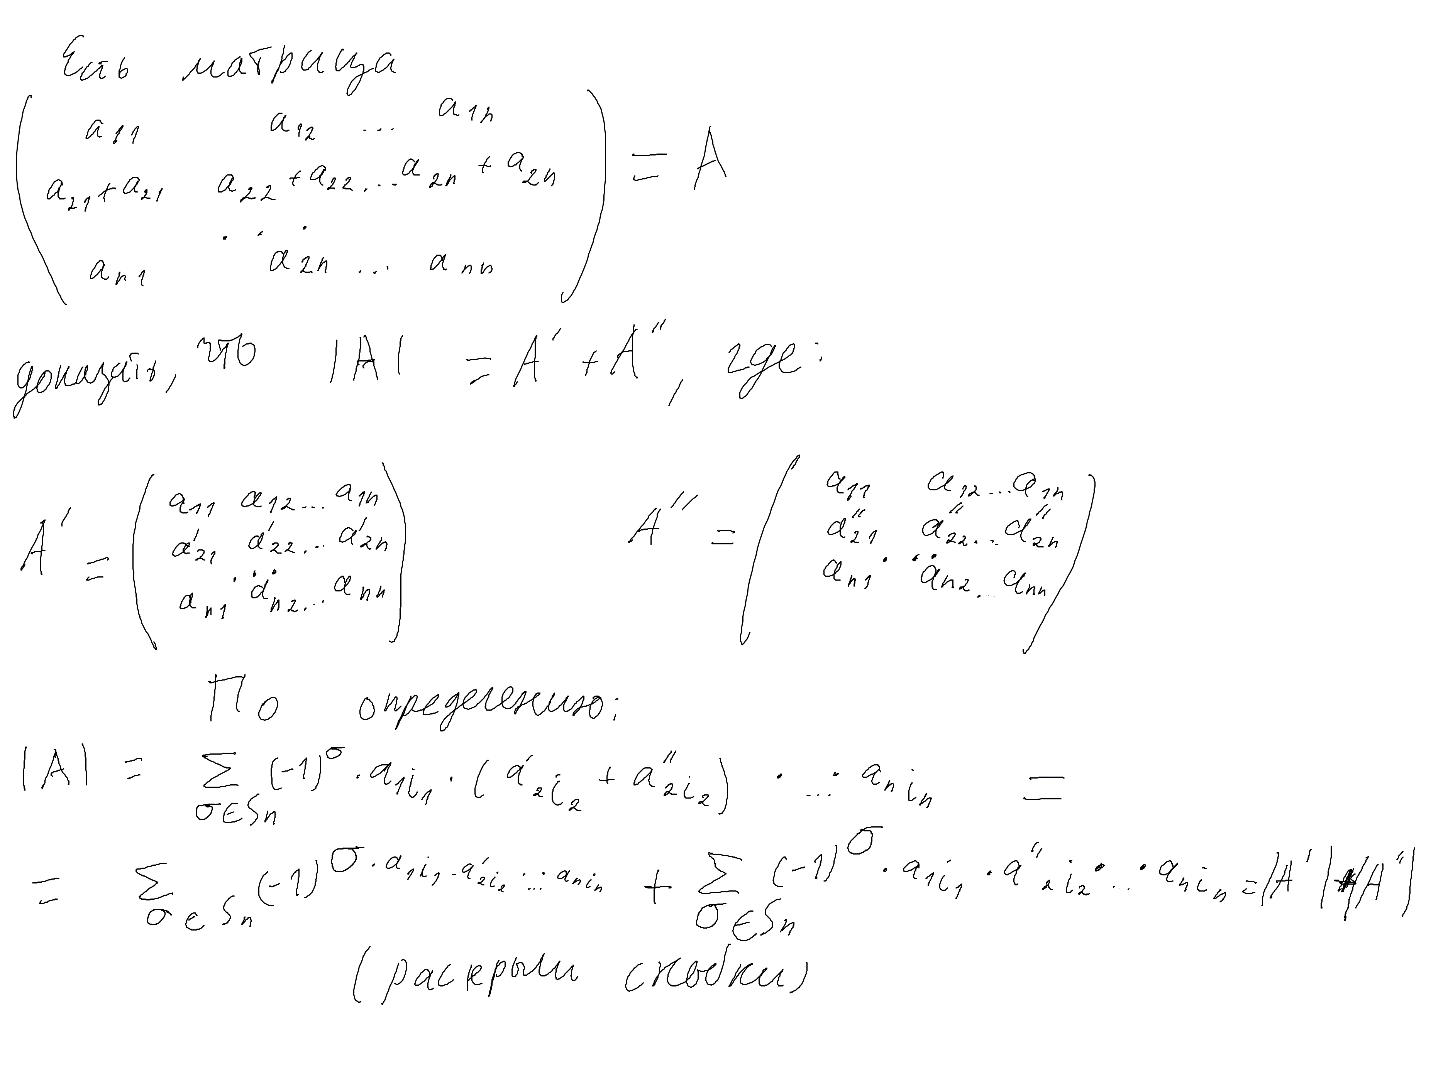 Есть матрица
( a₁₁ a₁₂ ... a₁ₙ
a₂₁+a₂₁ a₂₂+a₂₂ ... a₂ₙ+a₂ₙ ) = A
. . .
aₙ₁ a₂ₙ ... aₙₙ
доказать, что |A| = A′ + A″, где:
A′ = ( a₁₁ a₁₂ ... a₁ₙ
a′₂₁ a′₂₂ ... a′₂ₙ
. . .
aₙ₁ aₙ₂ ... aₙₙ )
A″ = ( a₁₁ a₁₂ ... a₁ₙ
a″₂₁ a″₂₂ ... a″₂ₙ
. . .
aₙ₁ aₙ₂ ... aₙₙ )
По определению:
|A| = Σ_{σ∈Sₙ} (-1)^σ · a_{1i₁} · (a′_{2i₂} + a″_{2i₂}) · ... · a_{niₙ} =
= Σ_{σ∈Sₙ} (-1)^σ · a_{1i₁} · a′_{2i₂} · ... · a_{niₙ} + Σ_{σ∈Sₙ} (-1)^σ · a_{1i₁} · a″_{2i₂} · ... · a_{niₙ} = |A′| + |A″|
(раскрыли скобки)